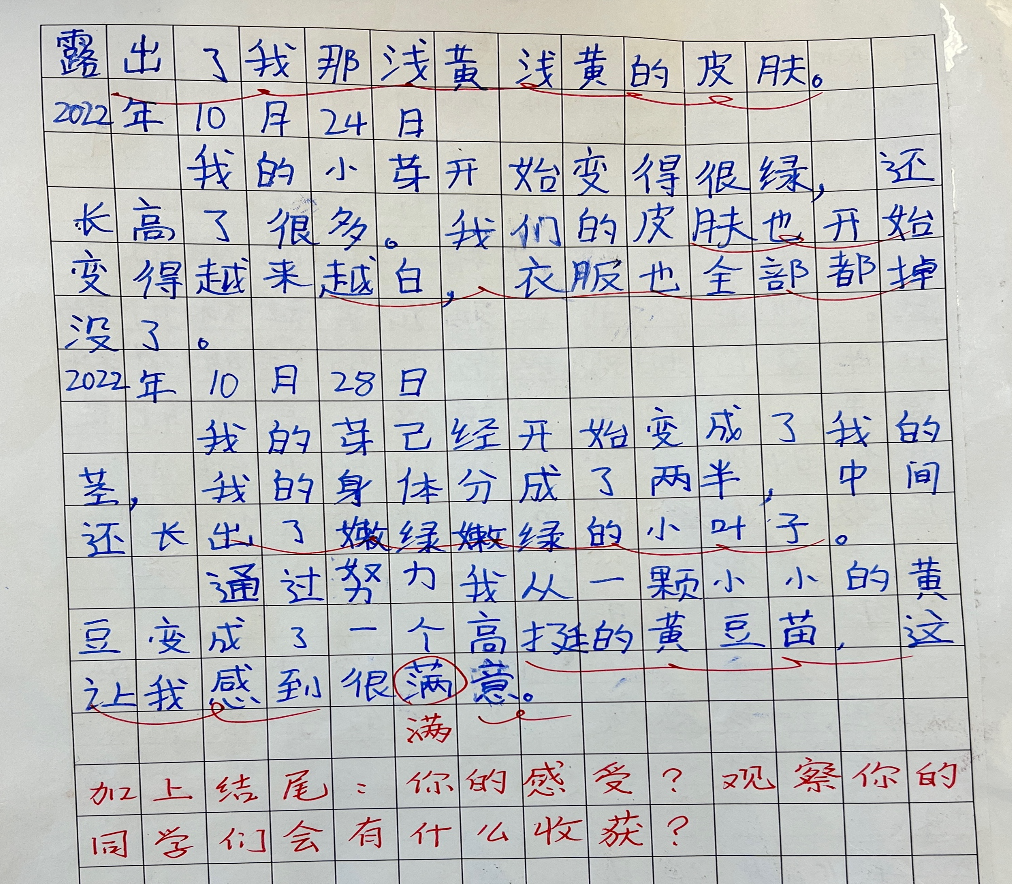 露出了我那浅黄浅黄的皮肤。
2022年10月24日
我的小芽开始变得很绿，还
长高了很多。我们的皮肤也开始
变得越来越白，衣服也全部都掉
没了。
2022年10月28日
我的芽已经开始变成了我的
茎，我的身体分成了两半，中间
还长出了嫩绿嫩绿的小叶子。
通过努力我从一颗小小的黄
豆变成了一个高挺的黄豆苗，这
让我感到很满意。
满
加上结尾：你的感受？观察你的
同学们会有什么收获？